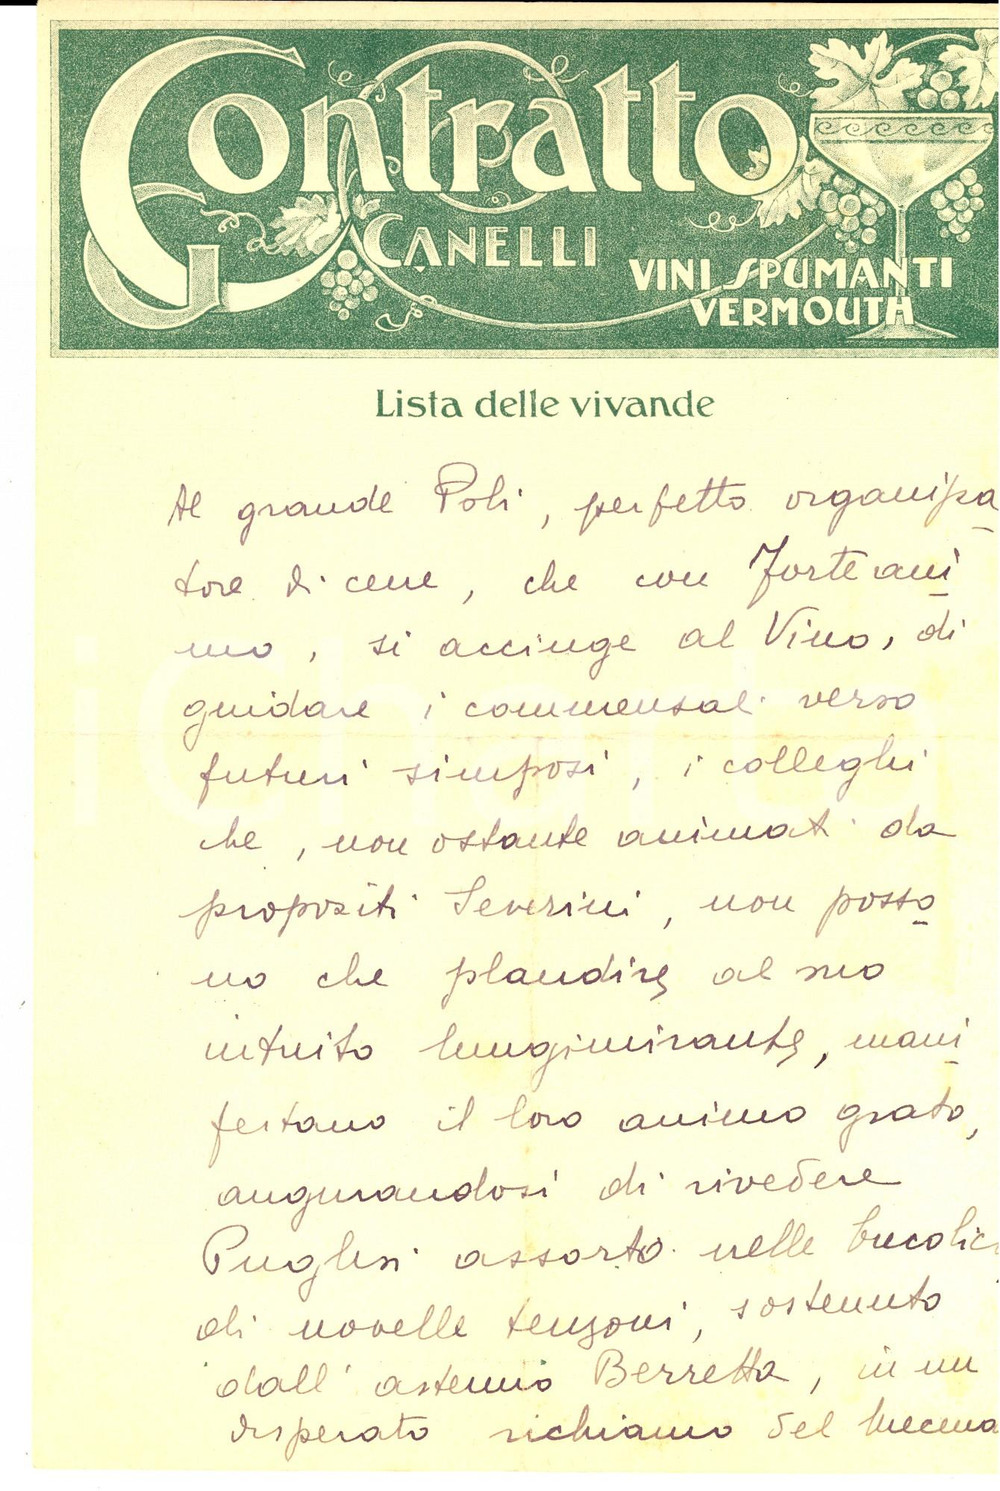 Contratto
CANELLI
VINI SPUMANTI
VERMOUTH
Lista delle vivande
Al grande Poli, perfetto organiza
tore di cene, che con Forte ani
mo, si accinge al Vino, di
guidare i commensali verso
futuri simposi, i colleghi
che, non ostante animati da
propositi Severini, non posso
no che plaudire al suo
intuito lungimirante, mani
festano il loro animo grato,
augurandosi di rivedere
Puglisi assorto nelle bucolic
di novelle tenzoni, sostenuto
dall' astemio Berretta, in un
disperato richiamo del mecena